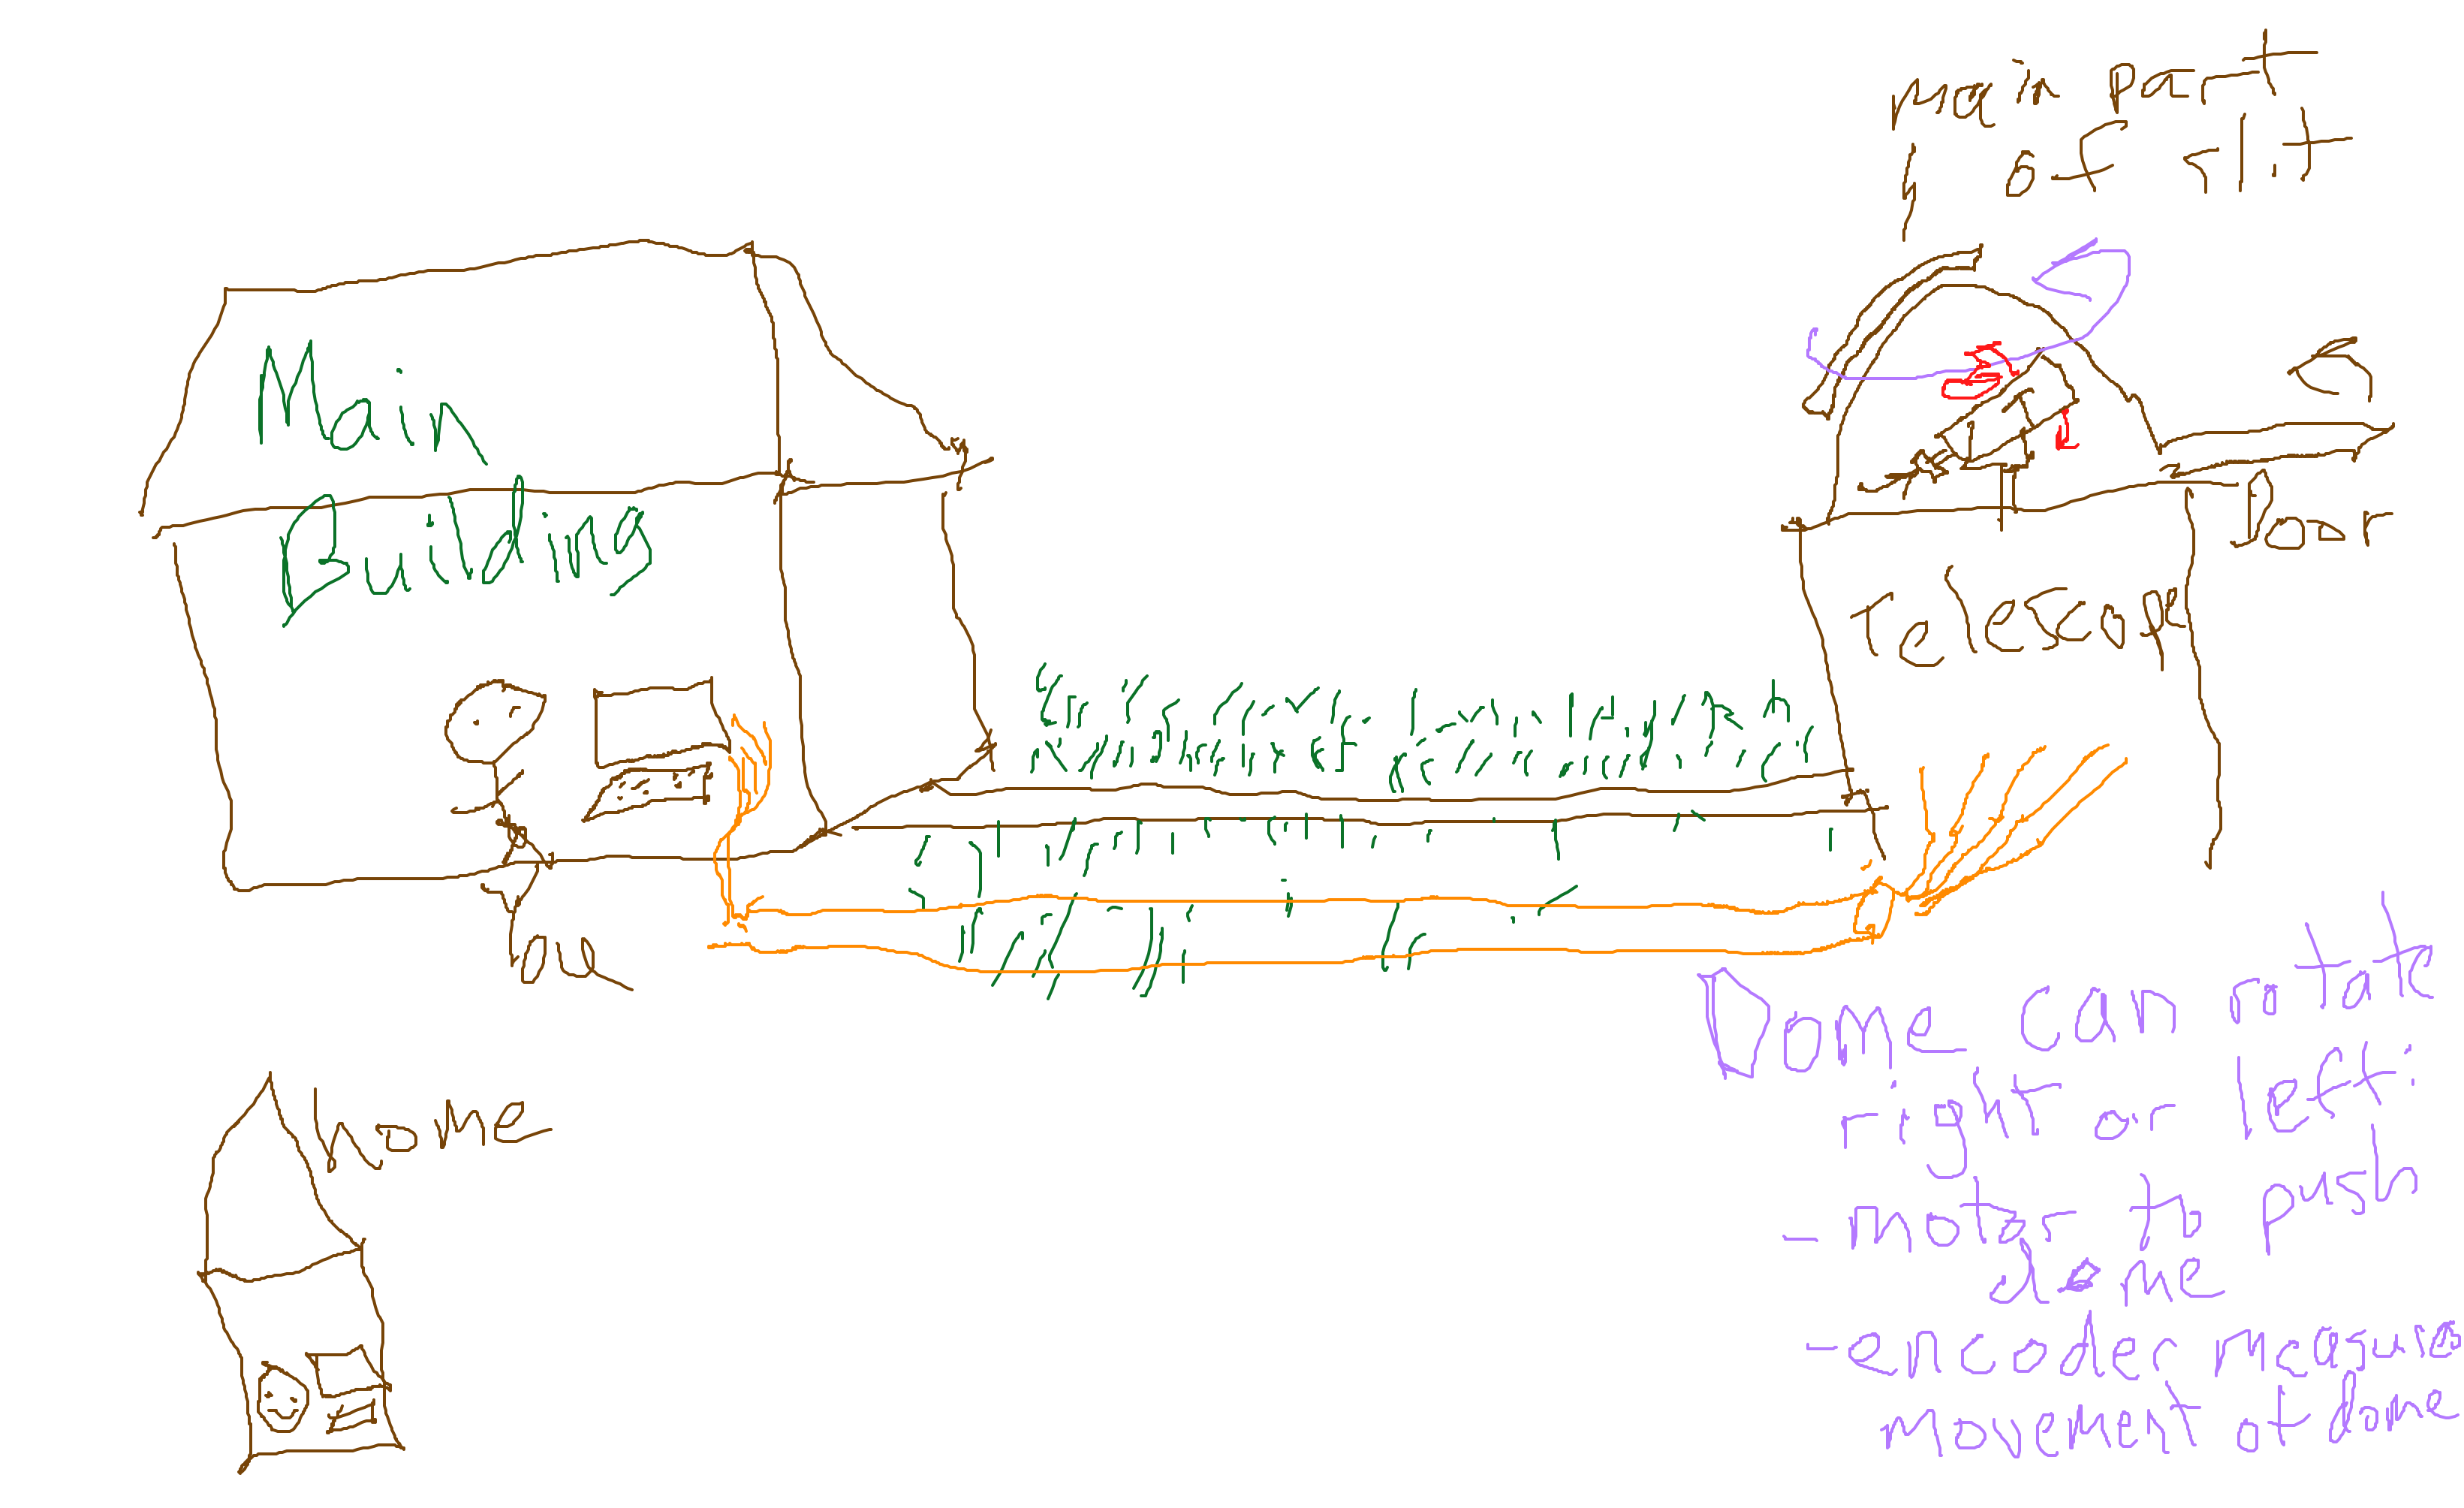 main part
of slit
Main
Building
Door
Telescope
me
Dome can rotate
right or left:
- motor to push
dome
- encoder measure
movement of dome
home